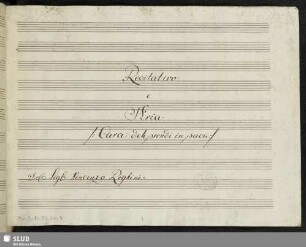 Recitativo
e
Aria
/: Cara deh prendi in pace :/
Del Sigl. Vincenzo Righini
SLUB
Wir führen Wissen.